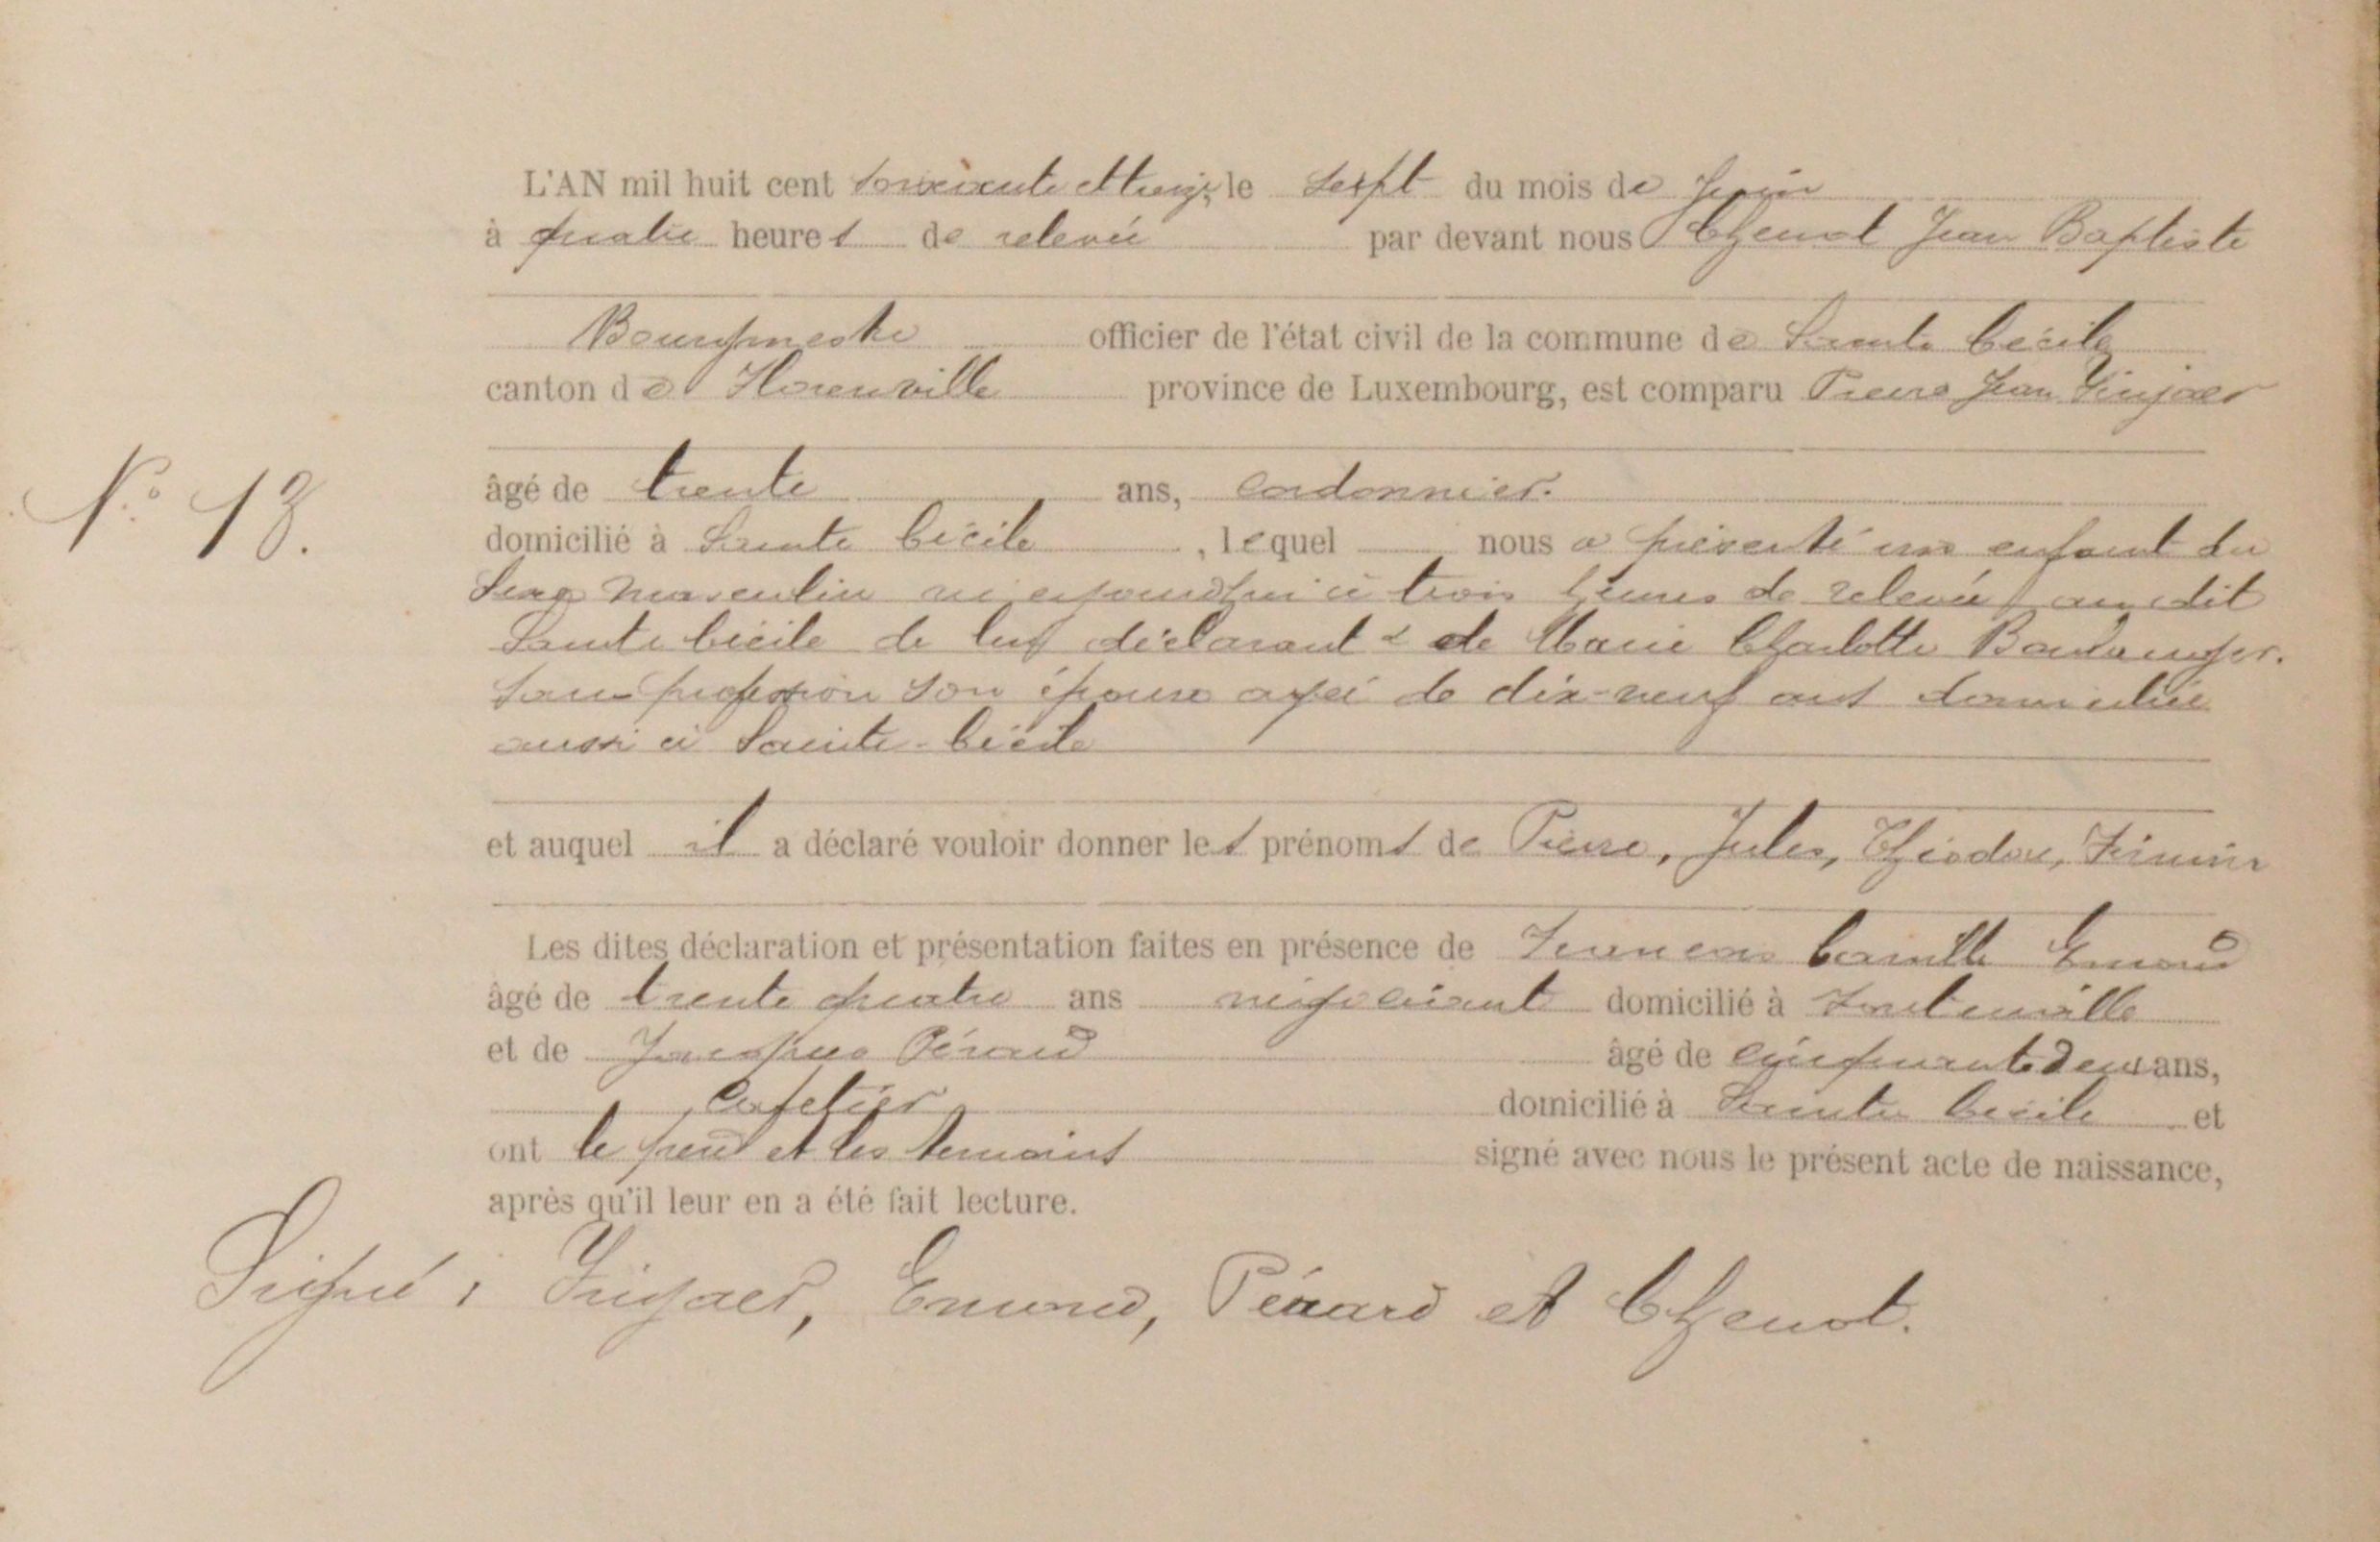 L'AN mil huit cent soixante et treize, le sept du mois de Juin
à quatre heures de relevée par devant nous Chenot Jean Baptiste
Bourgmestre officier de l'état civil de la commune de Sainte Cécile
canton de Florenville province de Luxembourg, est comparu Pierre Jean
N° 13.
âgé de trente ans, cordonnier.
domicilié à Sainte Cécile, lequel nous a présenté un enfant du
Sexe masculin né aujourd'hui à trois heures de relevée, audit
Sainte Cécile de lui déclarant & de Marie Charlotte Boulanger.
sans profession son épouse agée de dix-neuf ans domiciliée
aussi à Sainte-Cécile
et auquel il a déclaré vouloir donner les prénoms de Pierre, Jules, Théodore, Firmin
Les dites déclaration et présentation faites en présence de François Camille Emond
âgé de trente quatre ans négociant domicilié à Fontenoille
et de Jacques Pérard âgé de cinquante deux ans,
Cafetier domicilié à Sainte Cécile et
ont le père et les témoins signé avec nous le présent acte de naissance,
après qu'il leur en a été fait lecture.
Signé : Emond, Pérard et Chenot.